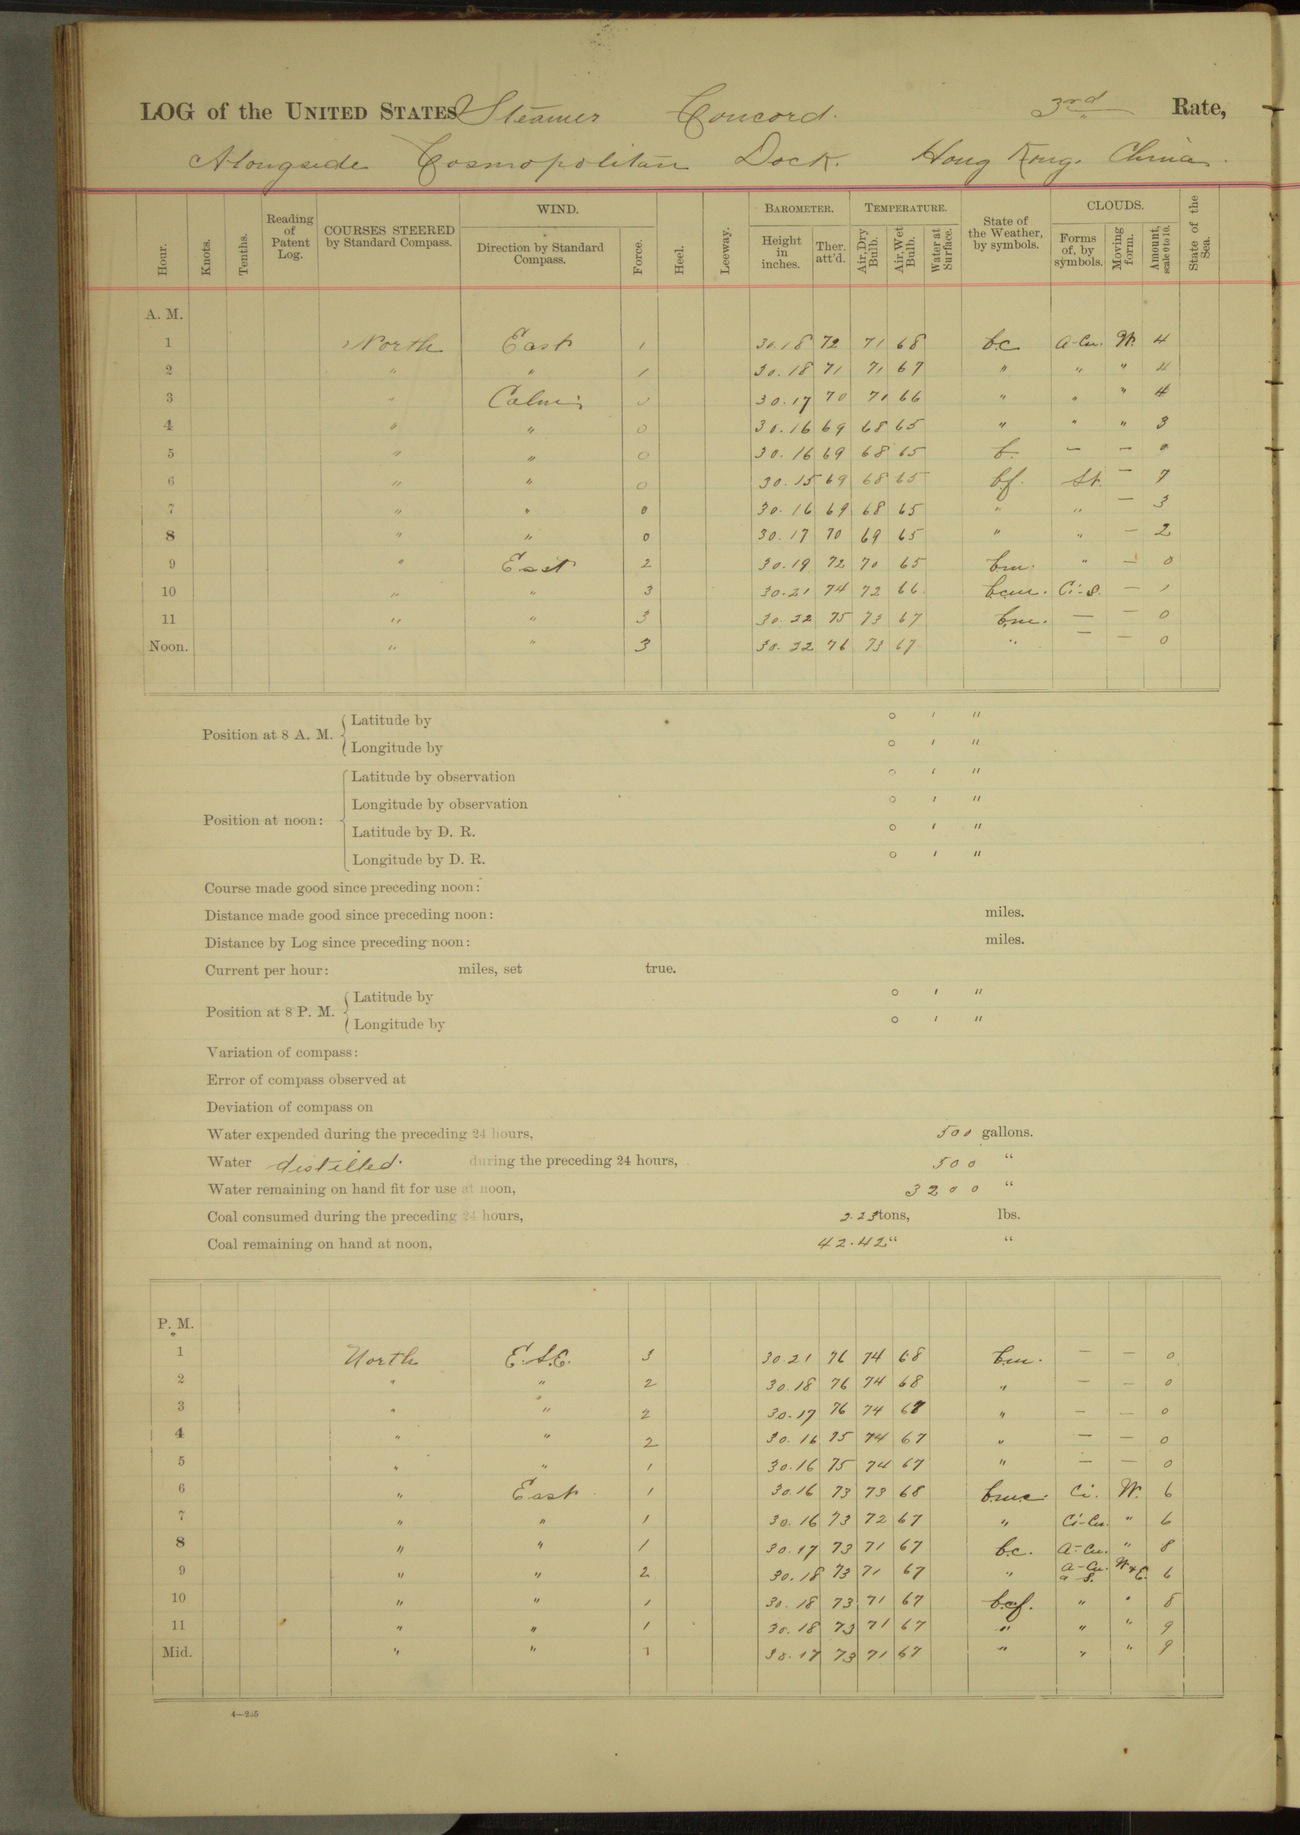 LOG of the UNITED STATES Steamer Concord. 3rd Rate,
Alongside Cosmopolitan Dock. Hong Kong. China.
Hour. Knots. Tenths. Reading of Patent Log. COURSES STEERED by Standard Compass. WIND. Direction by Standard Compass. Force. Heel. Leeway. BAROMETER. Height in inches. Ther. att'd. TEMPERATURE. Air, Dry Bulb. Air, Wet Bulb. Water at Surface. State of the Weather, by symbols. CLOUDS. Forms of, by symbols. Moving form. Amount, scale 0 to 10. State of the Sea.
A. M.
1 North East 1 30.18 72 71 68 b.c. a-cu. W. 4
2 " " 1 30.18 71 71 67 " " " 4
3 " Calm 0 30.17 70 71 66 " " " 4
4 " " 0 30.16 69 68 65 " " " 3
5 " " 0 30.16 69 68 65 b. — — 0
6 " " 0 30.15 69 68 65 b.f. St. — 7
7 " " 0 30.16 69 68 65 " " — 3
8 " " 0 30.17 70 69 65 " " — 2
9 " East 2 30.19 72 70 65 b.m. " — 0
10 " " 3 30.21 74 72 66 b.c.m. Ci-S. — 1
11 " " 3 30.22 75 73 67 b.m. — — 0
Noon. " " 3 30.22 76 73 67 " — — 0
Position at 8 A. M. { Latitude by ° ' "
Longitude by ° ' "
Position at noon: { Latitude by observation ° ' "
Longitude by observation ° ' "
Latitude by D. R. ° ' "
Longitude by D. R. ° ' "
Course made good since preceding noon:
Distance made good since preceding noon: miles.
Distance by Log since preceding noon: miles.
Current per hour: miles, set true.
Position at 8 P. M. { Latitude by ° ' "
Longitude by ° ' "
Variation of compass:
Error of compass observed at
Deviation of compass on
Water expended during the preceding 24 hours, 500 gallons.
Water distilled. during the preceding 24 hours, 500 "
Water remaining on hand fit for use at noon, 3200 "
Coal consumed during the preceding 24 hours, 2.23 tons, lbs.
Coal remaining on hand at noon, 42.42 " "
P. M.
1 North E.S.E. 3 30.21 76 74 68 b.m. — — 0
2 " " 2 30.18 76 74 68 " — — 0
3 " " 2 30.17 76 74 67 " — — 0
4 " " 2 30.16 75 74 67 " — — 0
5 " " 1 30.16 75 74 67 " — — 0
6 " East 1 30.16 73 73 68 b.m.c. Ci. W. 6
7 " " 1 30.16 73 72 67 " Ci-Cu. " 6
8 " " 1 30.17 73 71 67 b.c. a-cu. " 8
9 " " 2 30.18 73 71 67 " a-cu. a-s. W & E. 6
10 " " 1 30.18 73 71 67 b.c.f. " " 8
11 " " 1 30.18 73 71 67 " " " 9
Mid. " " 1 30.17 73 71 67 " " " 9
4—235